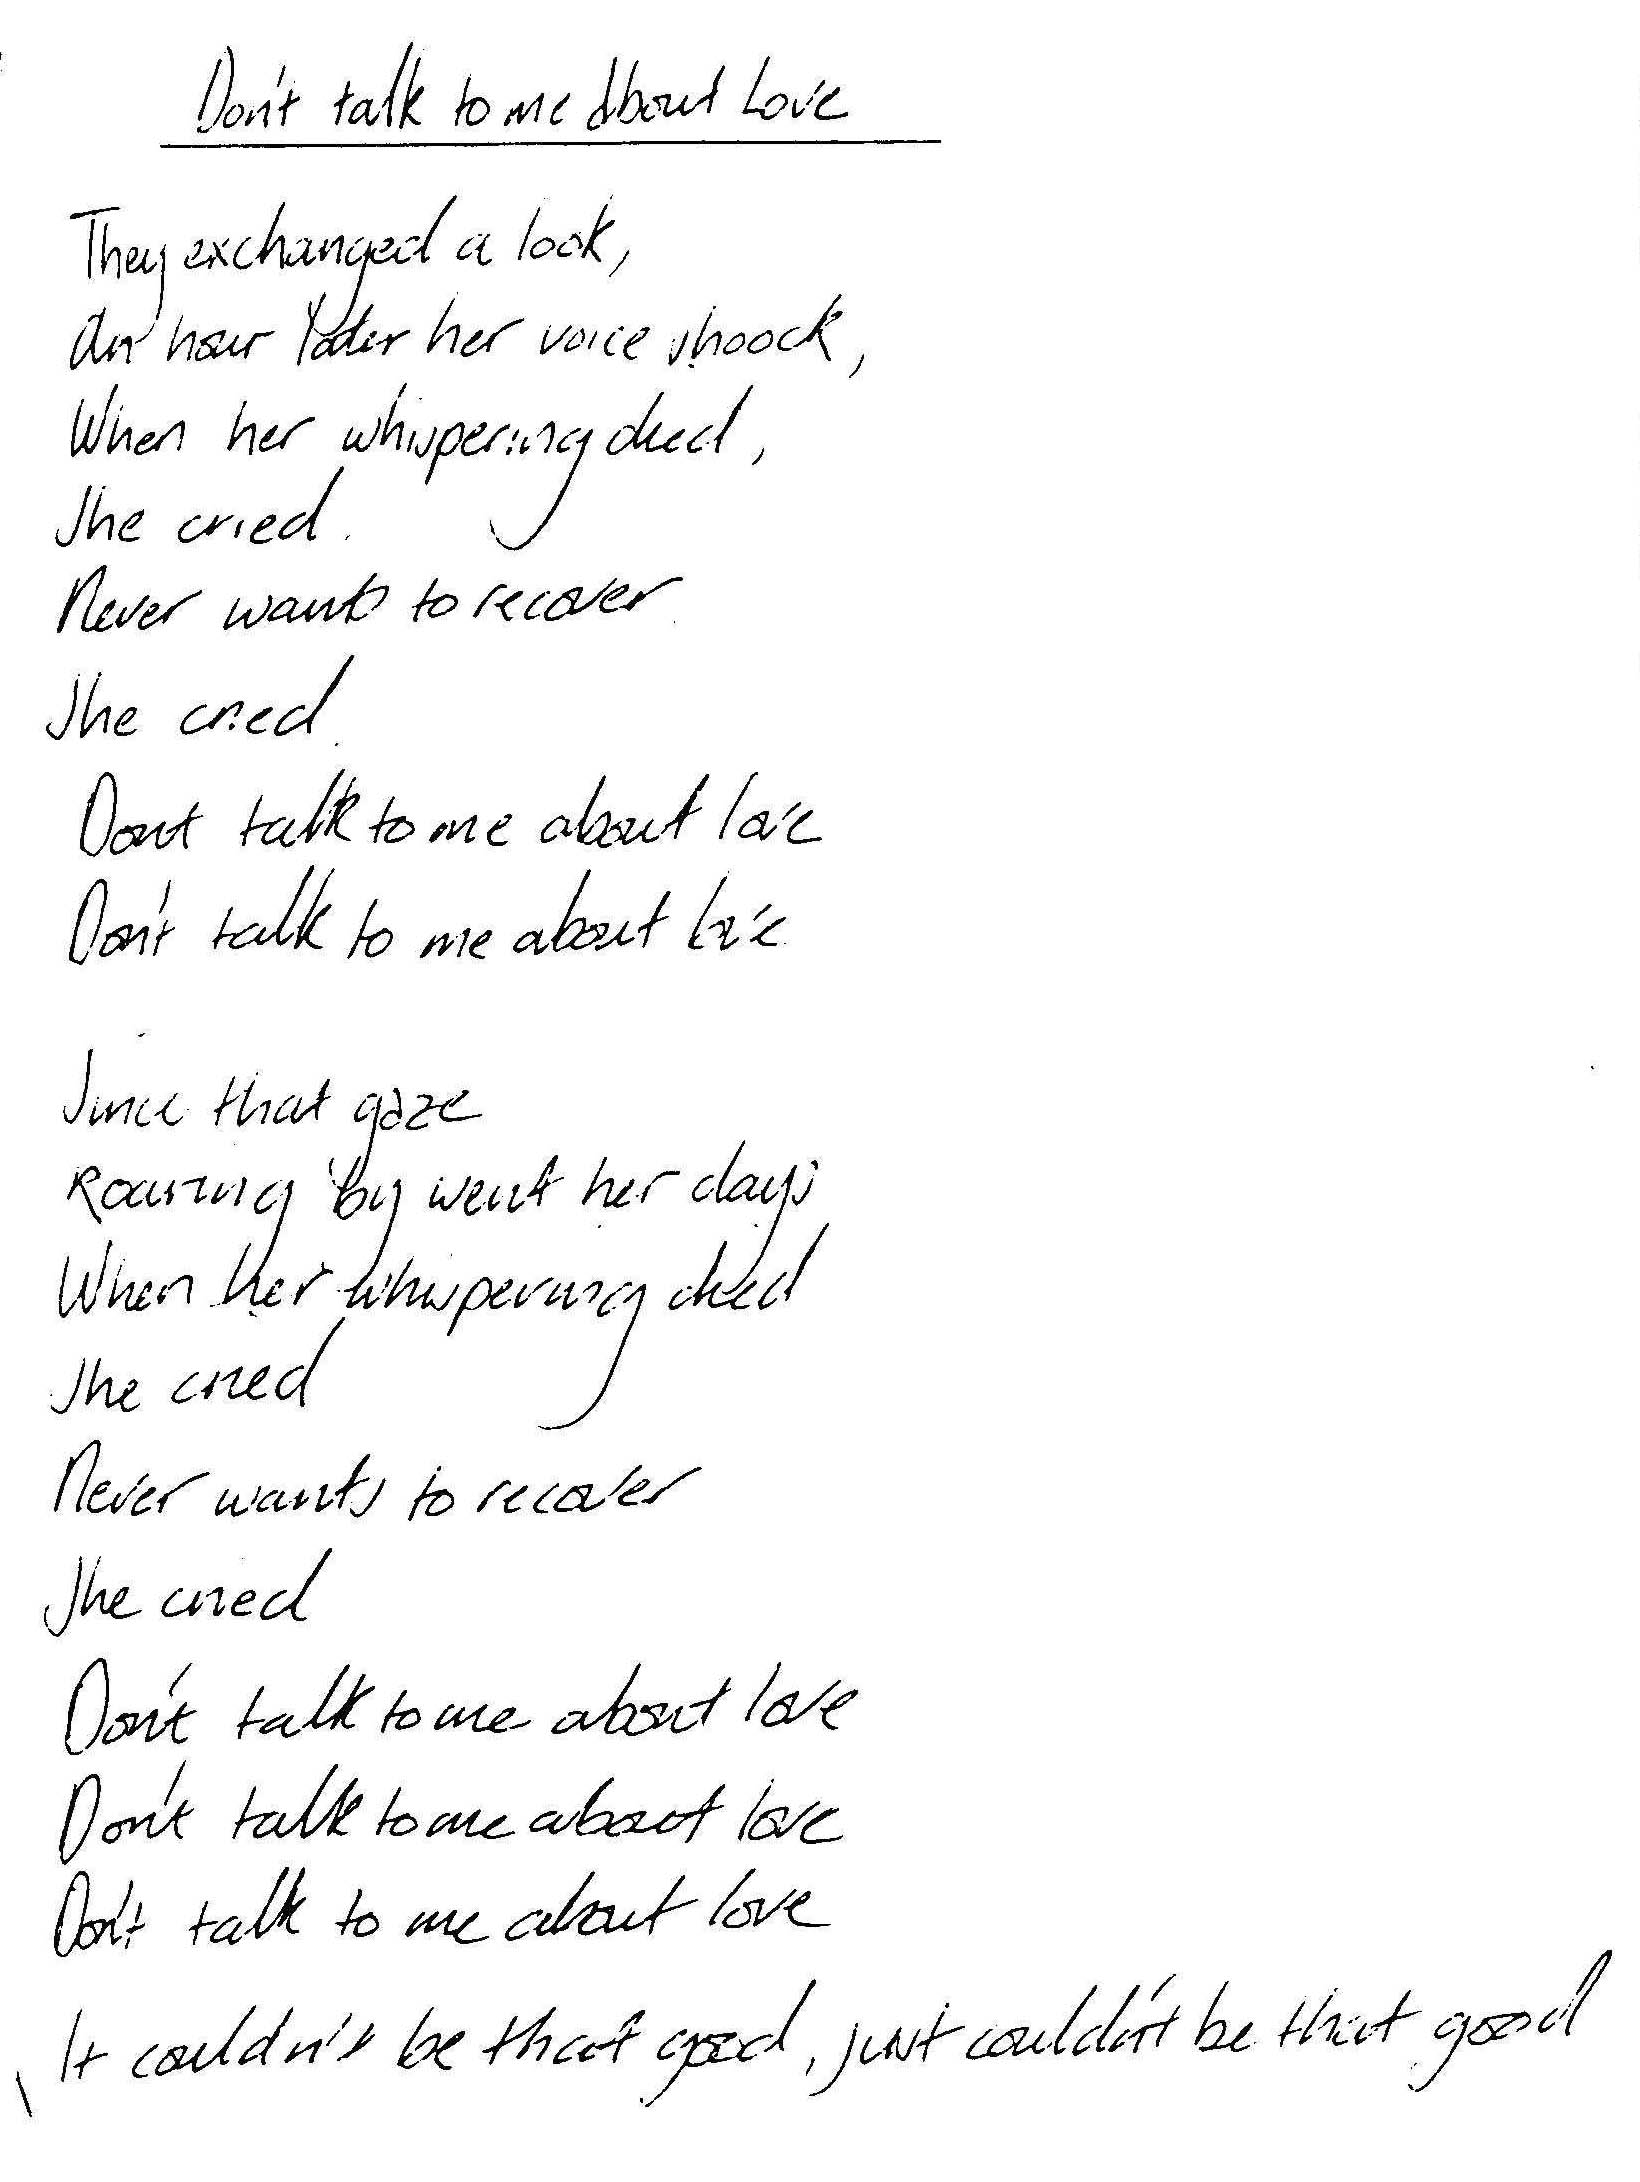 Don't talk to me about Love
They exchanged a look,
An hour later her voice shoock,
When her whispering died,
She cried.
Never wants to recover
She cried.
Dont talk to me about love
Don't talk to me about love
Since that gaze
Roaring by went her days
When her whispering died
She cried
Never wants to recover
She cried
Don't talk to me about love
Don't talk to me about love
Don't talk to me about love
It couldn't be that good, just couldn't be that good